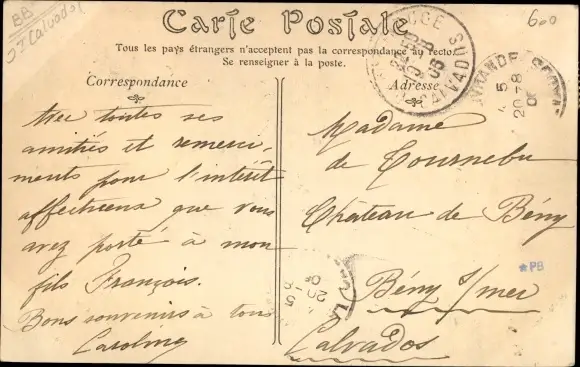 BB
JJ Calvados
600
Carte Postale
Tous les pays étrangers n'acceptent pas la correspondance au recto.
Se renseigner à la poste.
Correspondance
Avec toutes ses
amitiés et remerci-
ments pour l'intérêt
affectueux que vous
avez porté à mon
fils François.
Bons souvenirs à tous
Caroline
Adresse
Madame
de Tournebu
Château de Bény
Bény s/mer
Calvados
CALVADOS
05
20-78
*PB